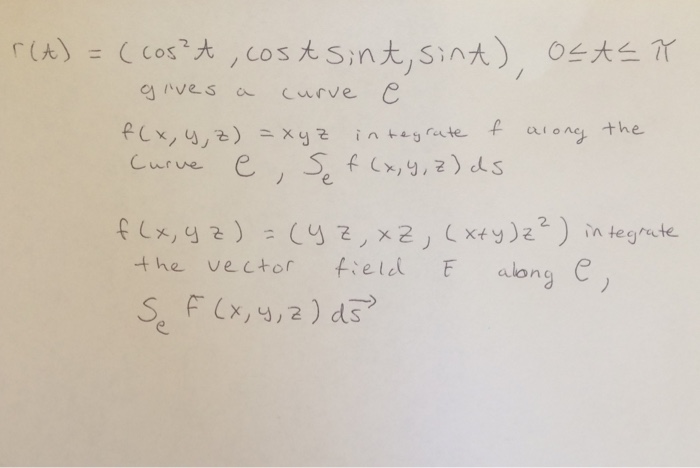 r(t) = (cos²t, cost sint, sint), 0≤t≤π
gives a curve C
f(x,y,z) = xyz integrate f along the
Curve C, ∫_C f(x,y,z) ds
f(x,y z) = (yz, xz, (x+y)z²) integrate
the vector field F along C,
∫_C F(x,y,z) ds⃗